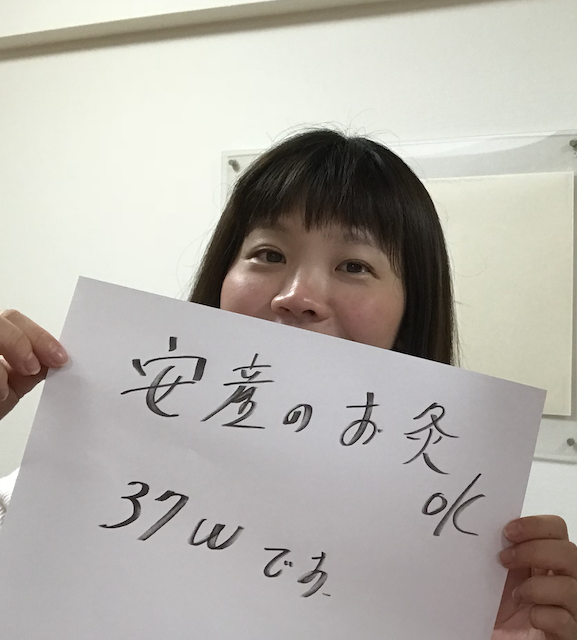 安産のお灸
OK
37wです